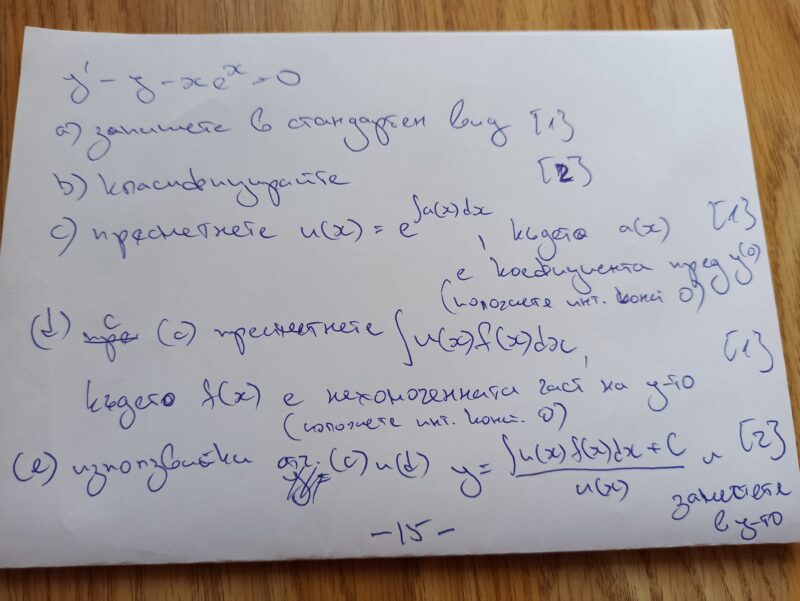 y' - y - xe^x = 0
а) запишете в стандартен вид [1]
b) класифицирайте [2]
c) пресметнете u(x) = e^{∫a(x)dx}, където a(x) [1]
е коефициента пред y^(0)
(положете инт. конст 0)
(d) с (c) пресметнете ∫u(x)f(x)dx, [1]
където f(x) е нехомогенната част на у-то
(положете инт. конст. 0)
(e) използвайки отг. (c) и (d) y = (∫u(x)f(x)dx + C)/u(x) и [2]
заместете
в у-то
-15-